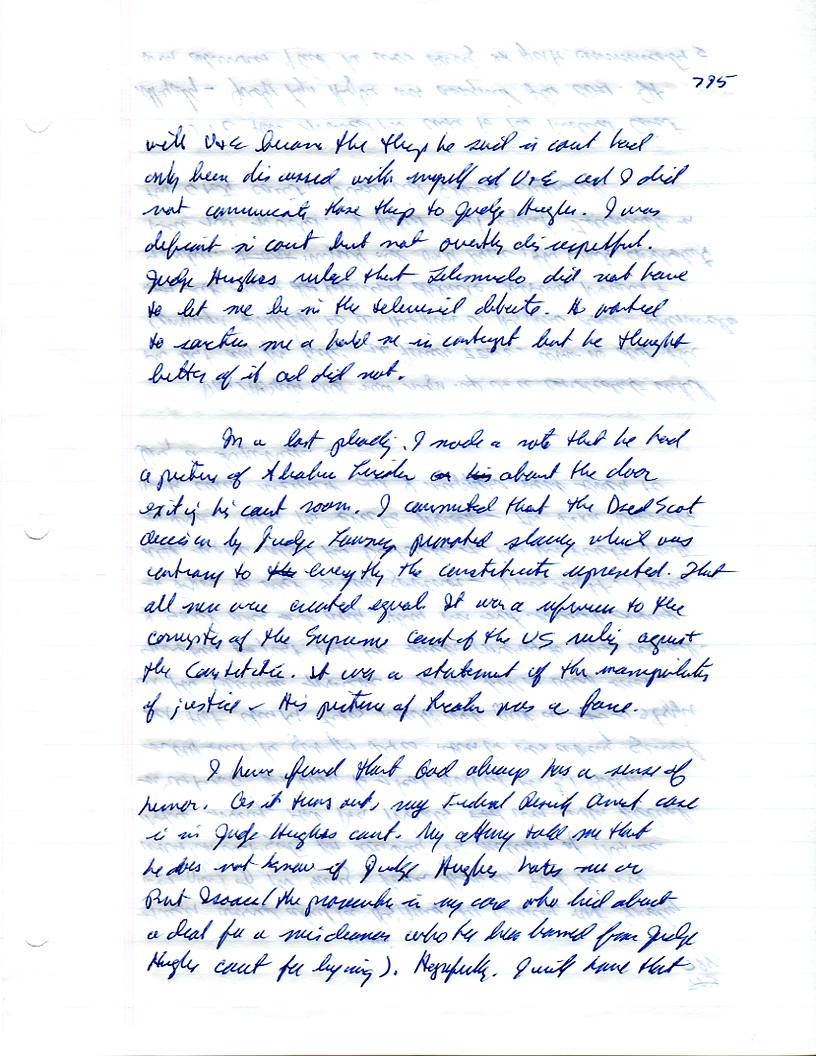 795
with V+E because the things he said in court had
only been discussed with myself and V+E and I did
not communicate those things to Judge Hughes. I was
defiant in court but not overtly disrespectful.
Judge Hughes ruled that Telemundo did not have
to let me be in the televised debate. He wanted
to sanction me or hold me in contempt but he thought
better of it and did not.
In a last pleading, I made a note that he had
a picture of Abraham Lincoln about the door
exiting his court room. I commented that the Dred Scot
decision by Judge promoted slavery which was
contrary to everything the constitution represented. That
all men were created equal. It was a reference to the
corruption of the Supreme court of the US ruling against
the Constitution. It was a statement of the manipulation
of justice - His picture of Lincoln was a farce.
I have found that God always has a sense of
humor. As it turns out, my Federal case
is in Judge Hughes court. My attorney told me that
he does not know if Judge Hughes hates me or
Isaacs (the prosecutor in my case who lied about
a deal for a misdemeanor who has been banned from Judge
Hughes court for lying). Hopefully. I will have that